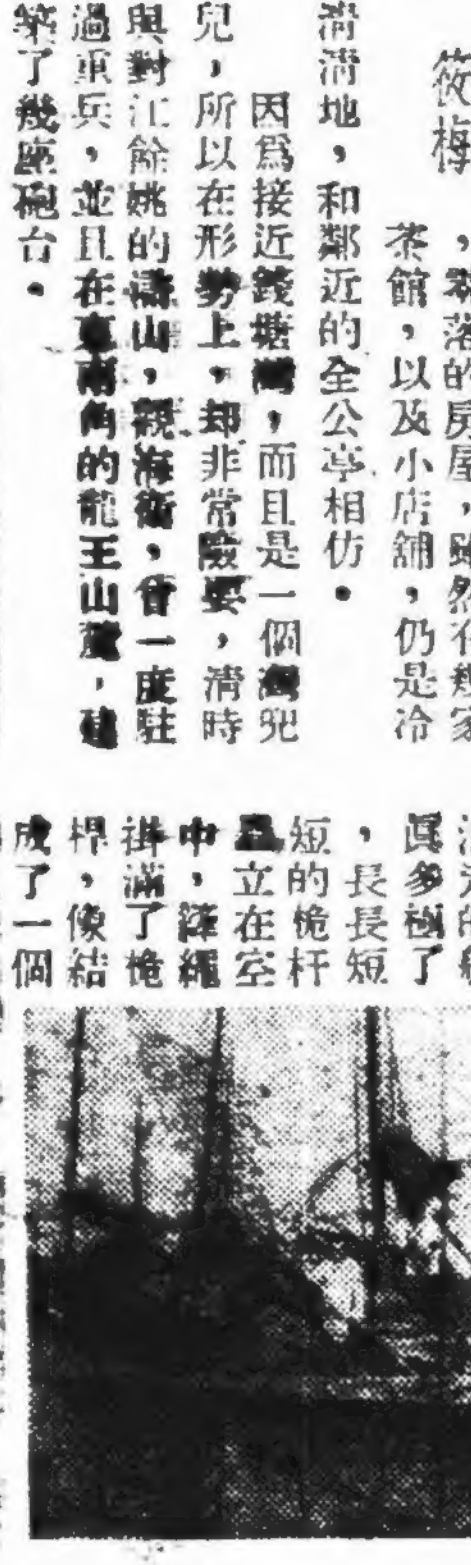 筱梅
落的房屋，雖然有幾家
茶館，以及小店舖，仍是冷
清清地，和鄰近的全公亭相仿。
因爲接近錢塘灣，而且是一個灣兜
兒，所以在形勢上，却非常險要，清時
與對江餘姚的滸山，觀海衛，曾一度駐
過重兵，並且在東南角的龍王山麓，建
築了幾座砲台。
眞多極了
，長長短
短的桅杆
矗立在空
中，繩
掛滿了桅
桿，像結
成了一個